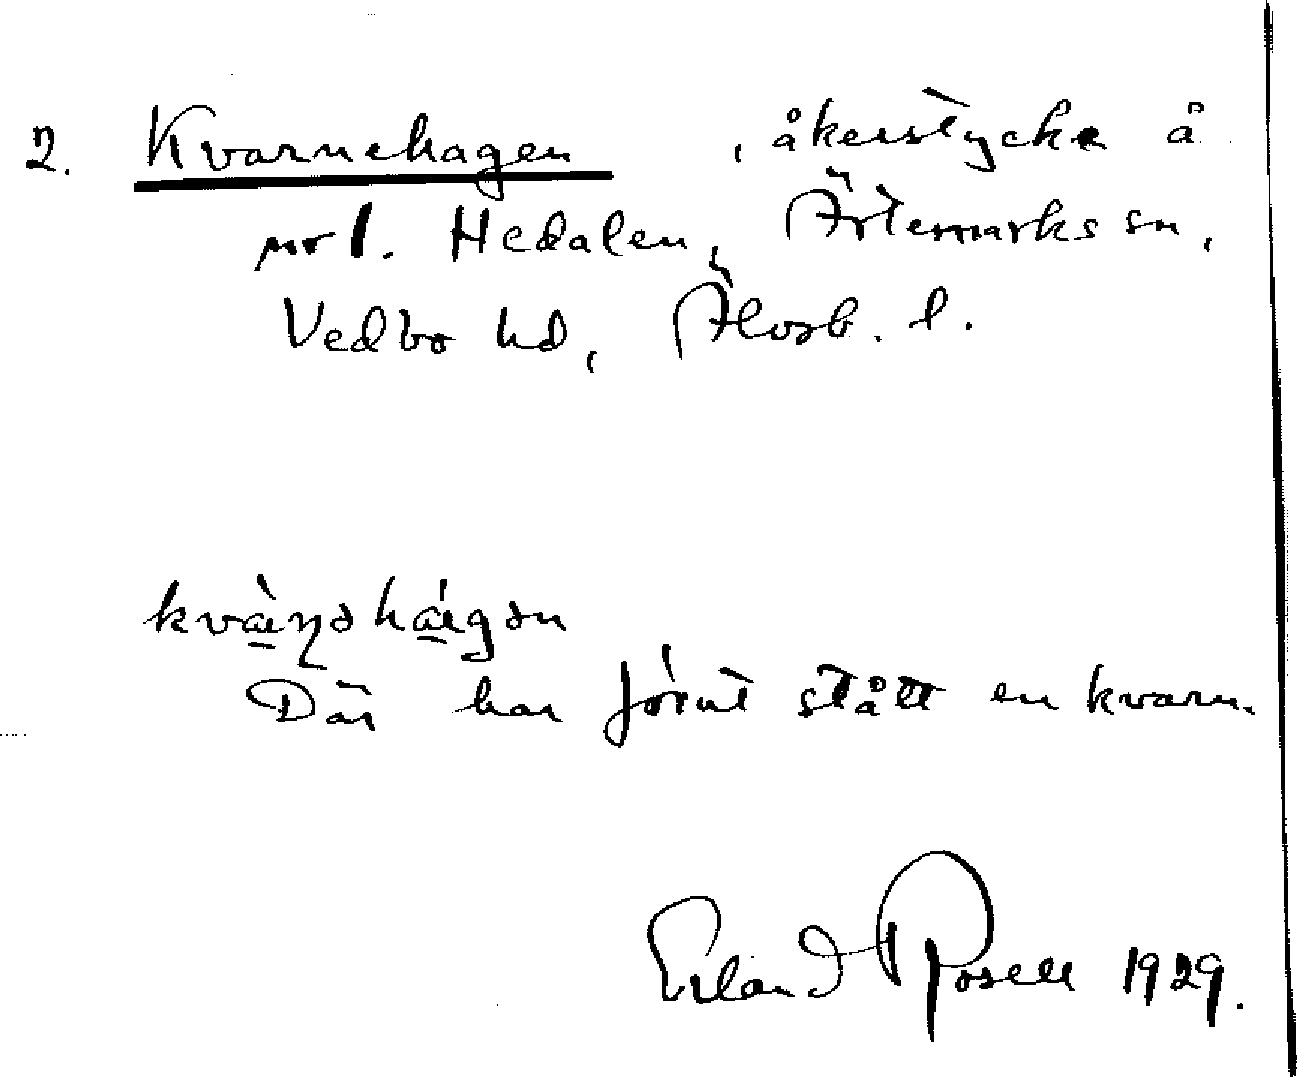 2. Kvarnehagen, åkerstycke å
nr 1. Hedalen, Ärtemarks sn,
Vedbo hd, Älvsb. l.
Där har förut stått en kvarn.
Erland Rosell 1929.